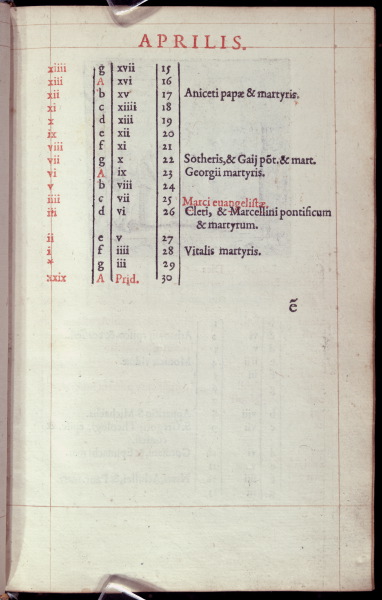 APRILIS.
xiiii g xvii 15
xiii A xvi 16
xii b xv 17 Aniceti papæ & martyris.
xi c xiiii 18
x d xiii 19
ix e xii 20
viii f xi 21
vii g x 22 Sotheris, & Gaij põt. & mart.
vi A ix 23 Georgii martyris.
v b viii 24
iiii c vii 25 Marci euangelistæ.
iii d vi 26 Cleti, & Marcellini pontificum
& martyrum.
ii e v 27
i f iiii 28 Vitalis martyris.
* g iii 29
xxix A Prid. 30
ẽ